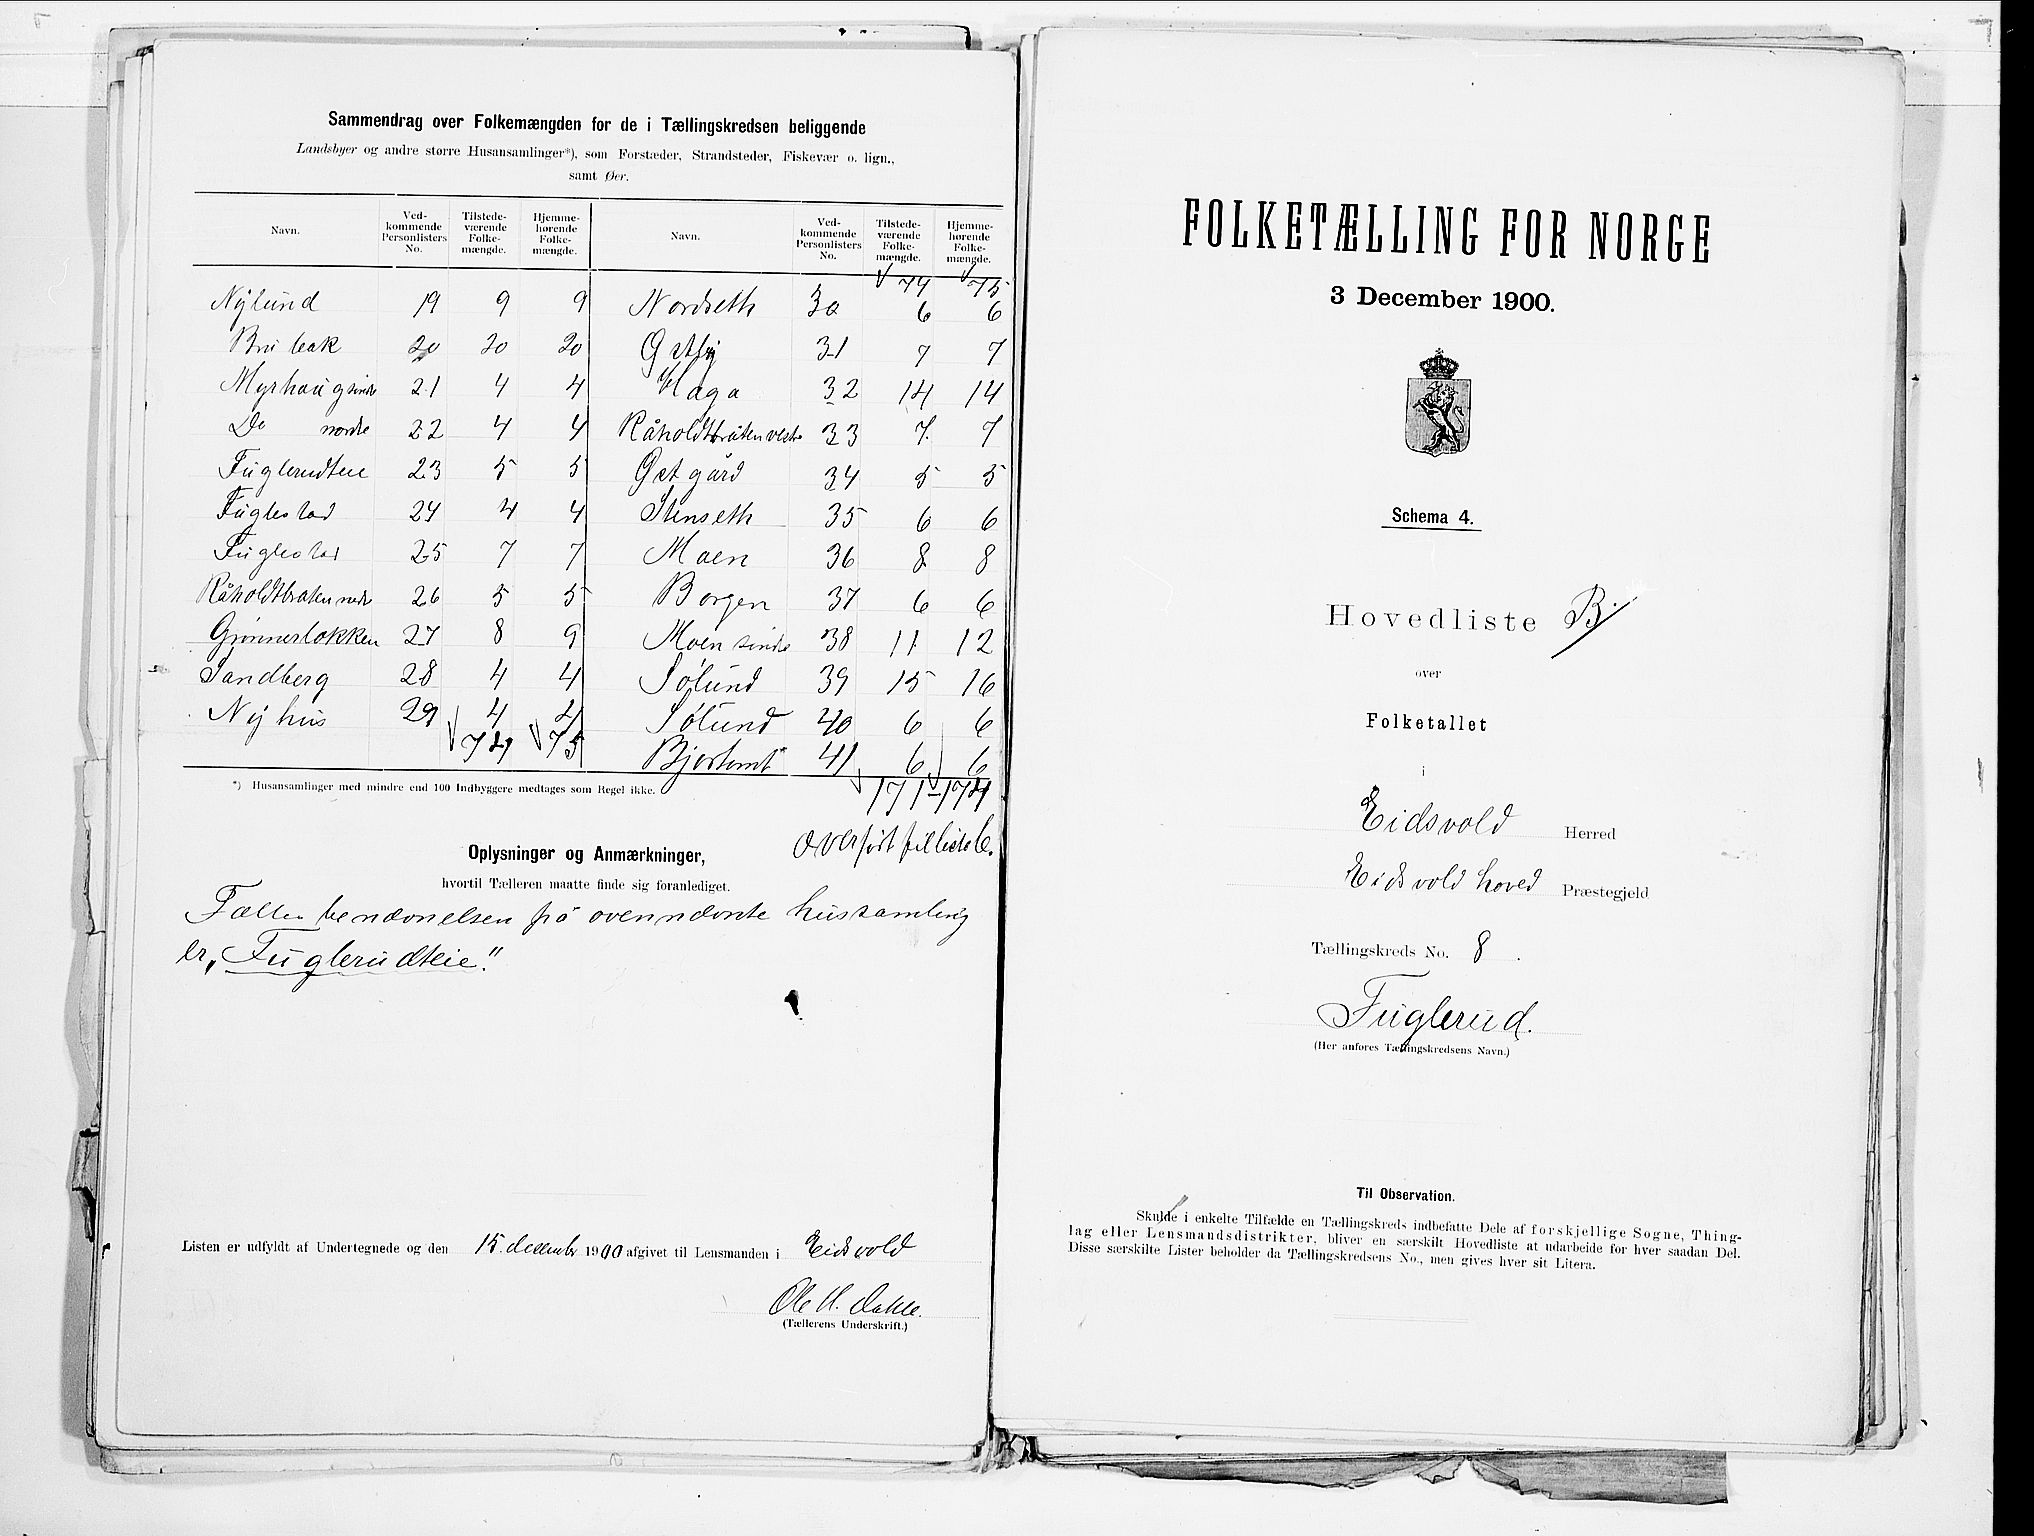 Sammendrag over Folkemængden for de i Tællingskredsen beliggende
Landsbyer og andre større Husansamlinger*), som Forstæder, Strandsteder, Fiskevær o. lign.,
samt Øer.
Navn. Ved-kommende Personlisters No. Tilstede-værende Folke-mængde. Hjemme-hørende Folke-mængde. Navn. Ved-kommende Personlisters No. Tilstede-værende Folke-mængde. Hjemme-hørende Folke-mængde.
74 75
Nylund 19 9 9 Nordseth 30 6 6
Brubak 20 20 20 Østby 31 7 7
Myrhaug søndre 21 4 4 Haga 32 14 14
Do nordre 22 4 4 Råholdtbråten vestre 33 7 7
Fuglerudteie 23 5 5 Østgård 34 5 5
Fuglestad 24 4 4 Stenseth 35 6 6
Fuglestad 25 7 7 Moen 36 8 8
Råholdtbråten nedre 26 5 5 Borgen 37 6 6
Grünnerløkken 27 8 9 Moen søndre 38 11 12
Sandberg 28 4 4 Sølund 39 15 16
Nyhus 29 4 4 Sølund 40 6 6
74 75 41 6 6
*) Husansamlinger med mindre end 100 Indbyggere medtages som Regel ikke.
171 174
overført til liste
Oplysninger og Anmærkninger,
hvortil Tælleren maatte finde sig foranlediget.
Fælles benævnelsen på ovennævnte hussamling
er „Fuglerudteie".
Listen er udfyldt af Undertegnede og den 15. desembr 1900 afgivet til Lensmanden i Eidsvold
Ole H. Dahle.
(Tællerens Underskrift.)
FOLKETÆLLING FOR NORGE
3 December 1900.
Schema 4.
Hovedliste B.
over
Folketallet
i
Eidsvold Herred
Eidsvold hoved Præstegjeld
Tællingskreds No. 8.
Fuglerud.
(Her anføres Tællingskredsens Navn.)
Til Observation.
Skulde i enkelte Tilfælde en Tællingskreds indbefatte Dele af forskjellige Sogne, Thing-
lag eller Lensmandsdistrikter, bliver en særskilt Hovedliste at udarbeide for hver saadan Del.
Disse særskilte Lister beholder da Tællingskredsens No., men gives hver sit Litera.